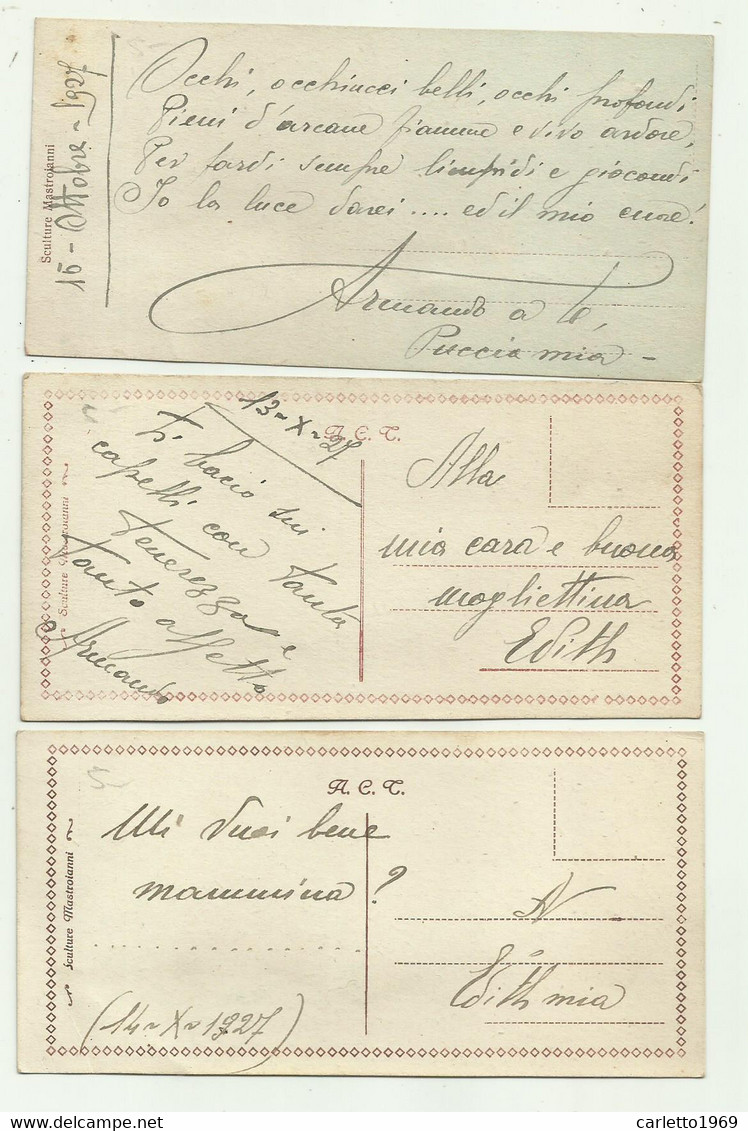 Sculture Mastroianni
15 - Ottobre - 1927
Occhi, occhiucci belli, occhi profondi
Pieni d'arcane fiamme e vivo ardore,
Per fardi sempre limpidi e giocondi
Io la luce darei .... ed il mio cuore!
Armando a te,
Puccia mia -
Sculture Mastroianni
13-X-27
A. C. T.
Ti bacio sui
capelli con tanta
tenerezza e
tanto affetto
Armando
Alla
mia cara e buona
mogliettina
Edith
Sculture Mastroianni
A. C. T.
Mi vuoi bene
mammina?
(14-X-1927)
A
Edith mia
carletto1969